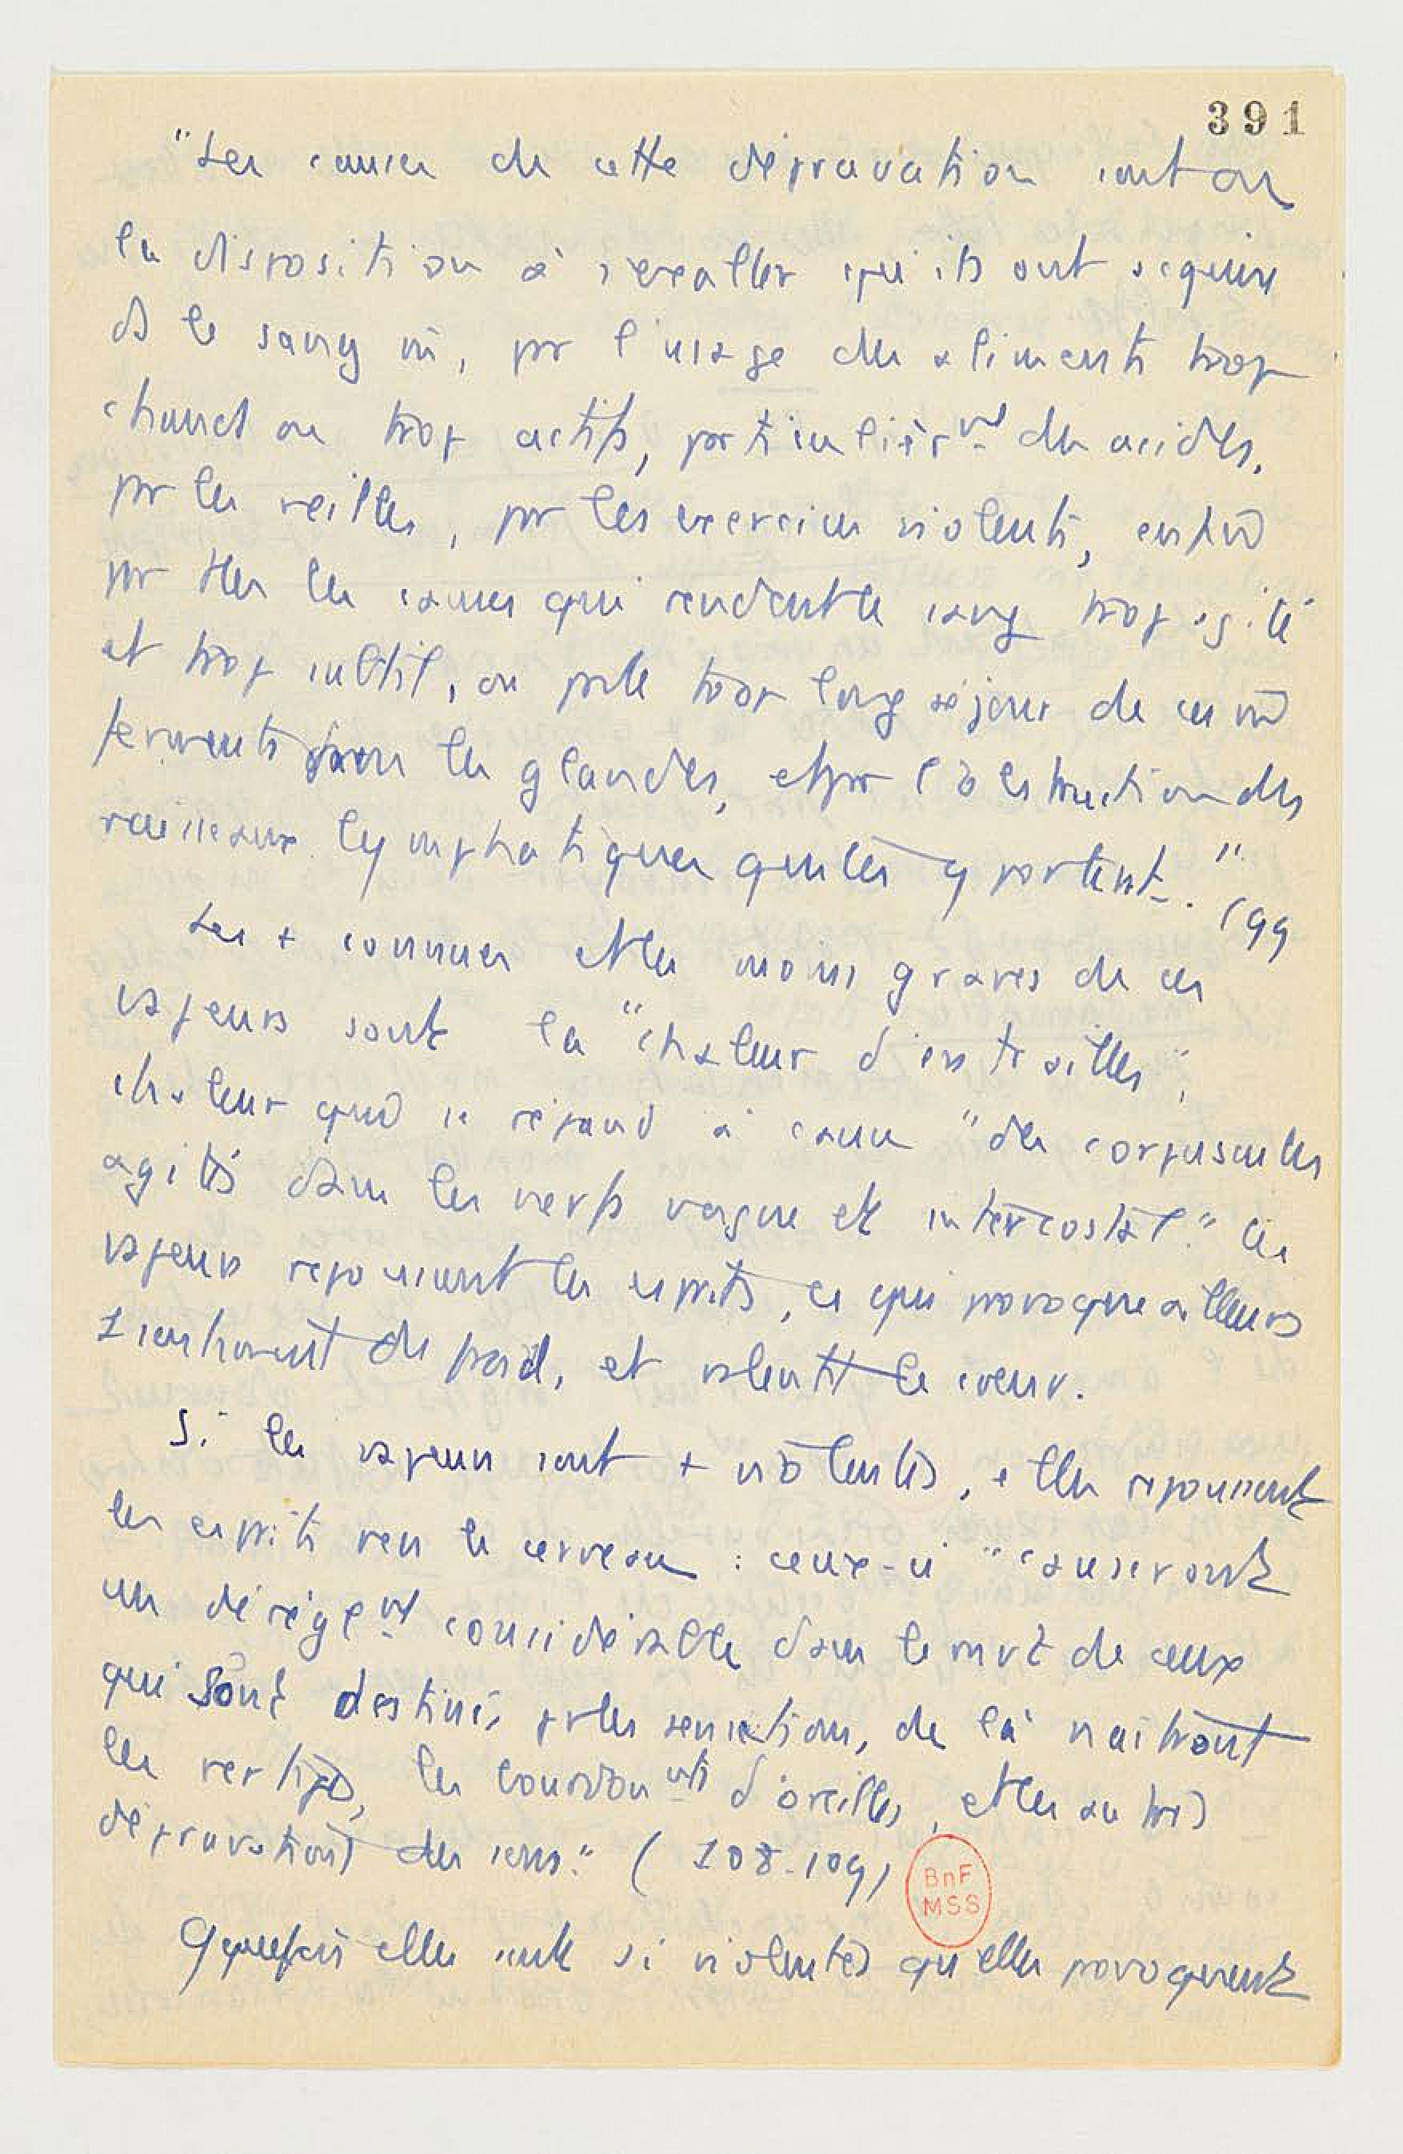 391
"Les causes de cette dépravation sont ou
la disposition à s'exalter qu'ils ont acquise
ds le sang m̄, par l'usage des aliments trop
chauds ou trop actifs, particulièrmt des acides,
par les veilles, par les exercices violents, enfin
par ttes les causes qui rendent le sang trop agité
et trop subtil, ou par le trop long séjour de ces m̄
ferments dans les glandes, et par l'obstruction des
vaisseaux lymphatiques qui les y portent." (99
Les + connues et les moins graves de ces
vapeurs sont la "chaleur d'entrailles",
chaleur qui se répand à cause "des corpuscules
agités dans les nerfs vague et intercostal." Ces
vapeurs repoussent les esprits, ce qui provoque ailleurs
1 sentiment de froid, et ralentit le coeur.
Si les vapeurs sont + violentes, elles repoussent
les esprits vers le cerveau : ceux-ci "causeront
un dérèglmt considérable dans le mvt de ceux
qui sont destinés pr les sensations, de là naîtront
les vertiges, les bourdonmts d'oreilles, et les autres
dépravations des sens." (108-109)
BnF
MSS
Qquefois elles sont si violentes qu'elles provoquent